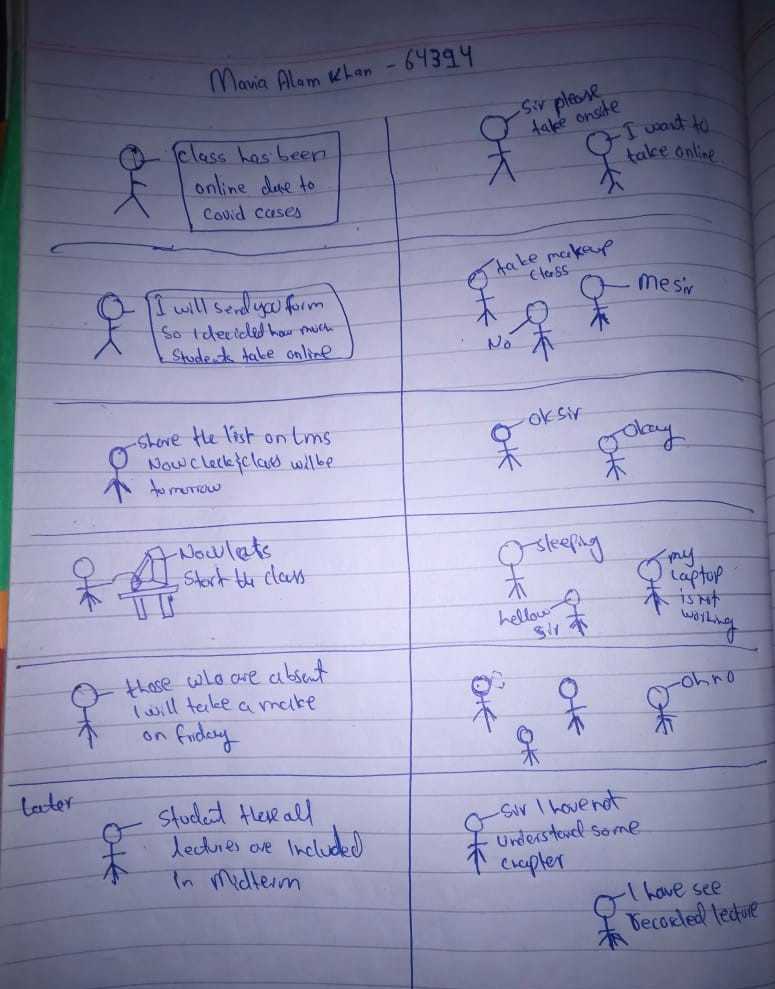 Mavia Alam Khan - 64394
class has been
online due to
covid cases
Sir please
take onsite
I want to
take online
I will send you form
So I decided how much
Students take online
take makeup
class
No
me sir
share the list on Lms
Now check & class will be
tomorrow
ok sir
okay
Now lets
Start the class
sleeping
hellow
sir
my
Laptop
is not
working
those who are absent
I will take a make
on friday
oh no
Later
Student these all
lectures are Included
in Midterm
Sir I have not
Understand some
chapter
I have see
recorded lecture